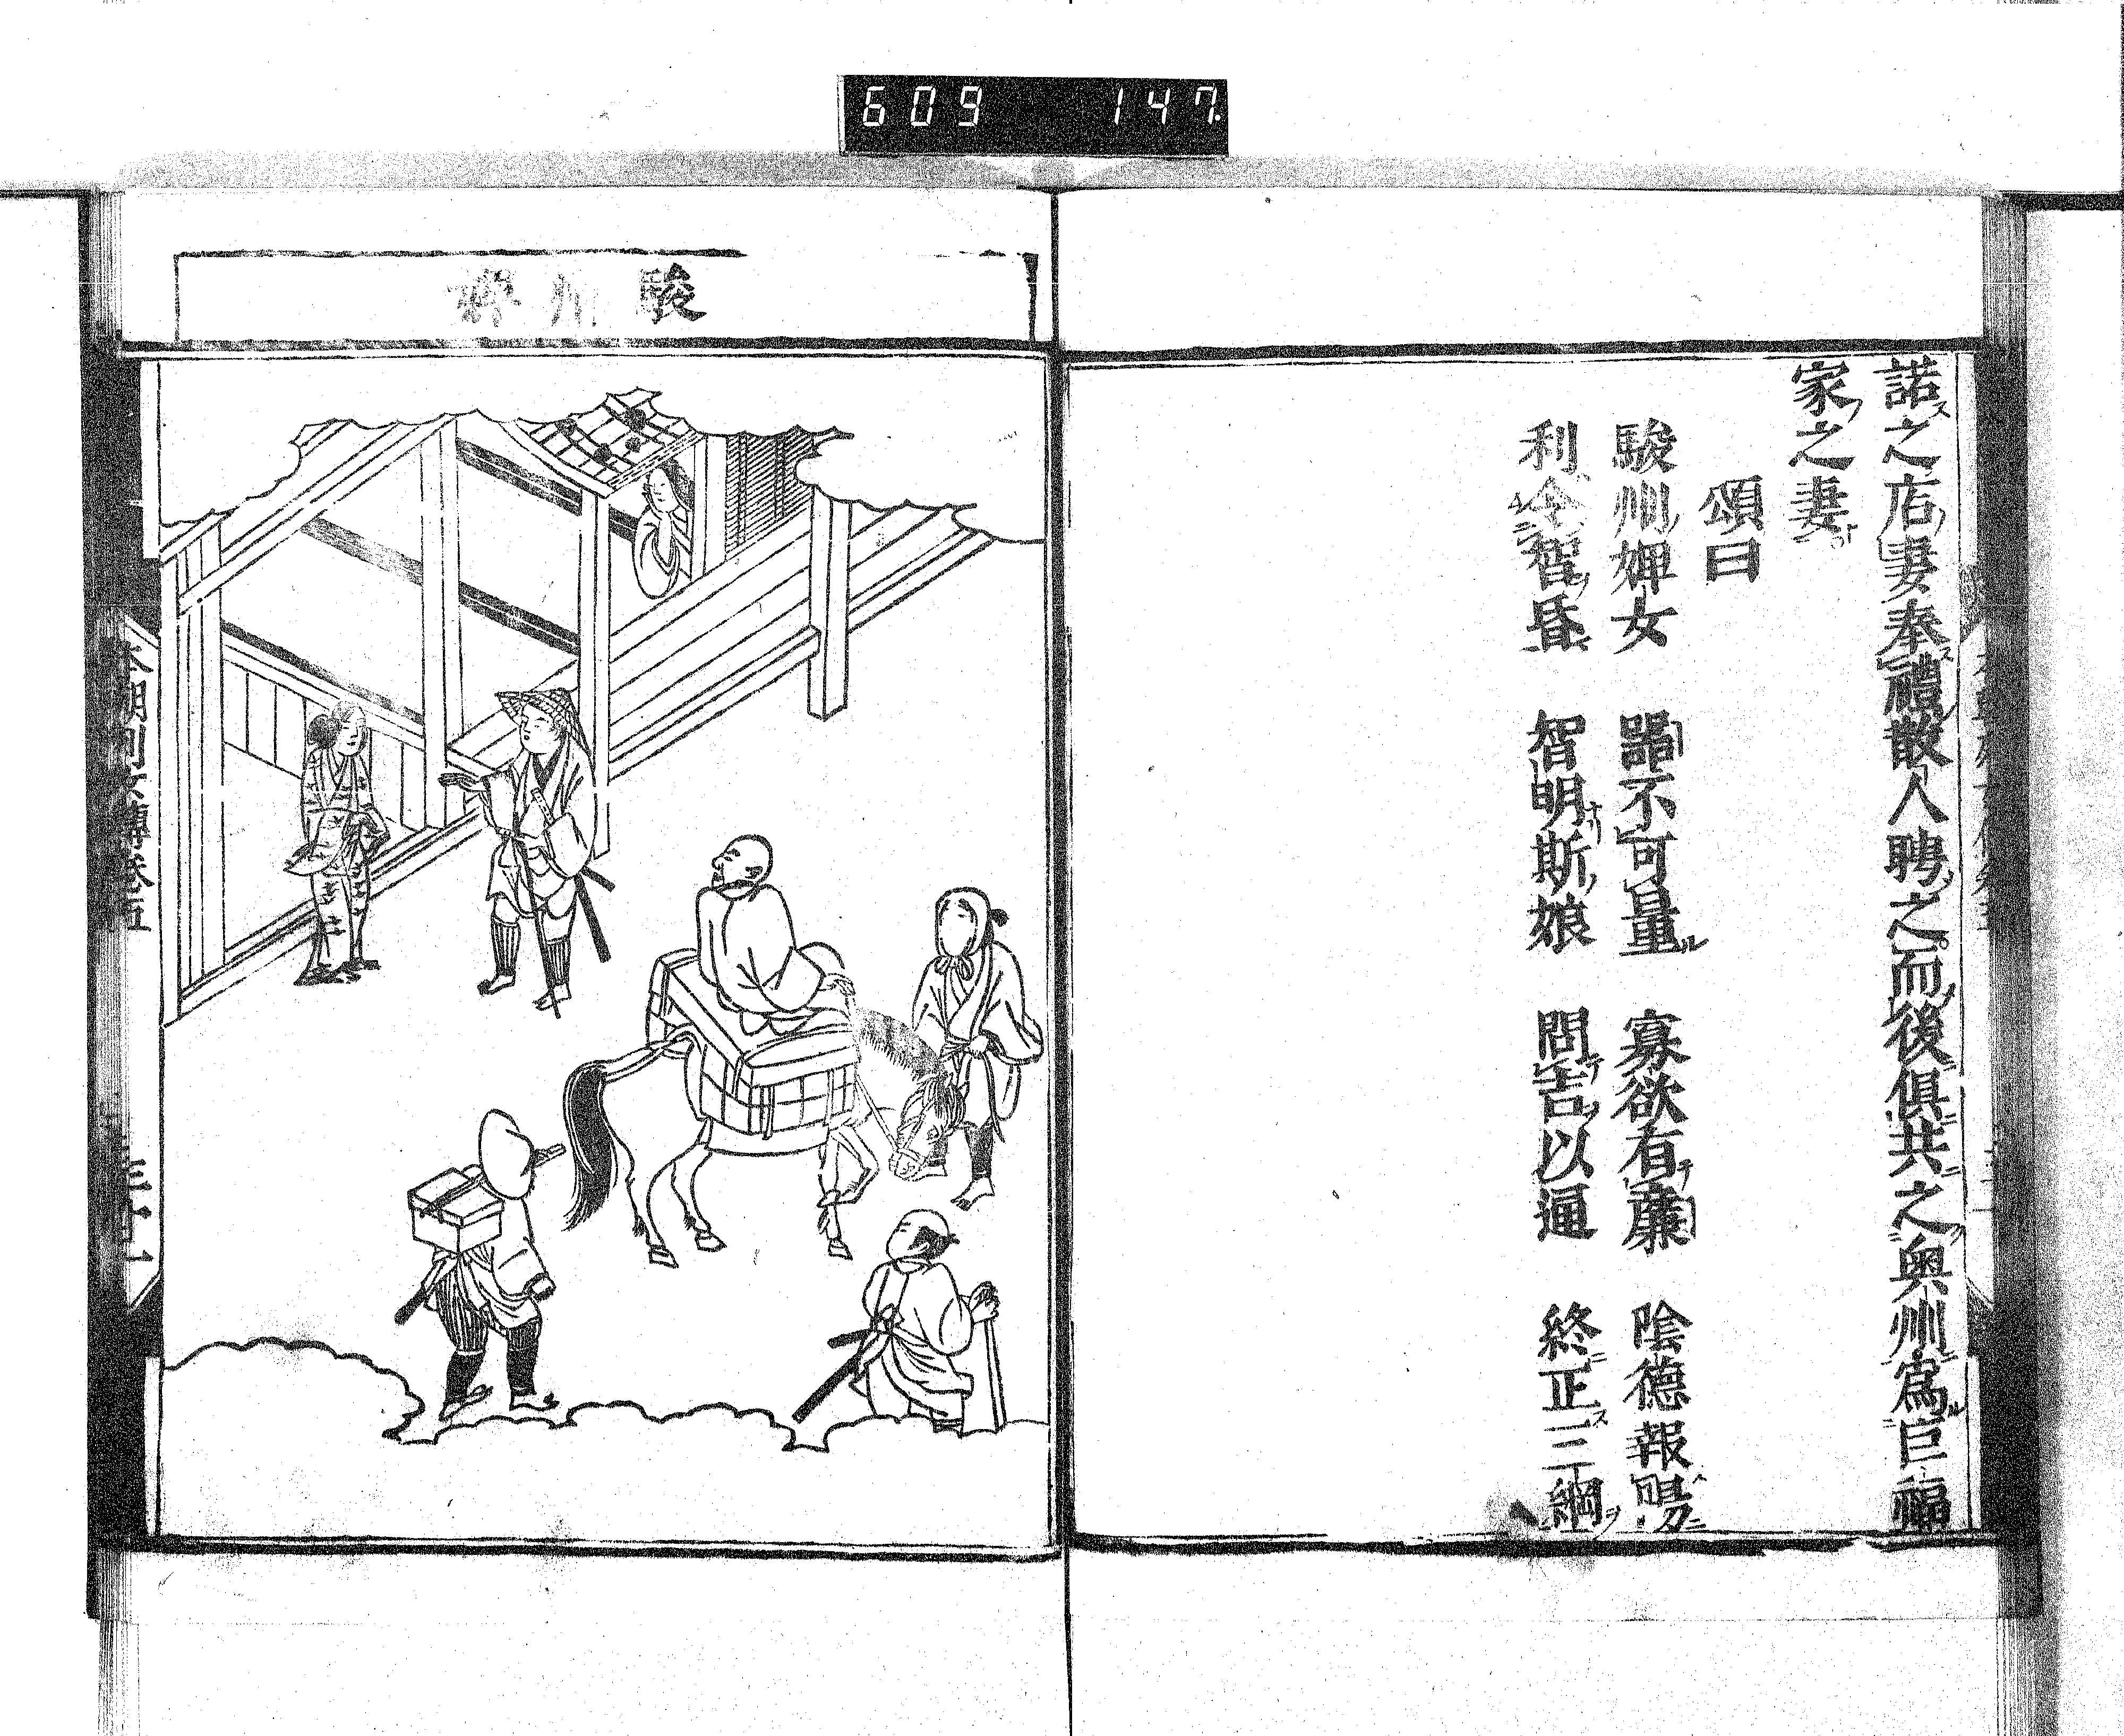 609 147
諾之店妻奉禮散人聘之而後俱共之奥州為巨福
家之妻
頌曰
駿州婢女 器不可量 寡欲有廉 陰德報陽
利令智昏 智明斯娘 問吉以逼 終正三綱
駿州婢
本朝列女傳卷五